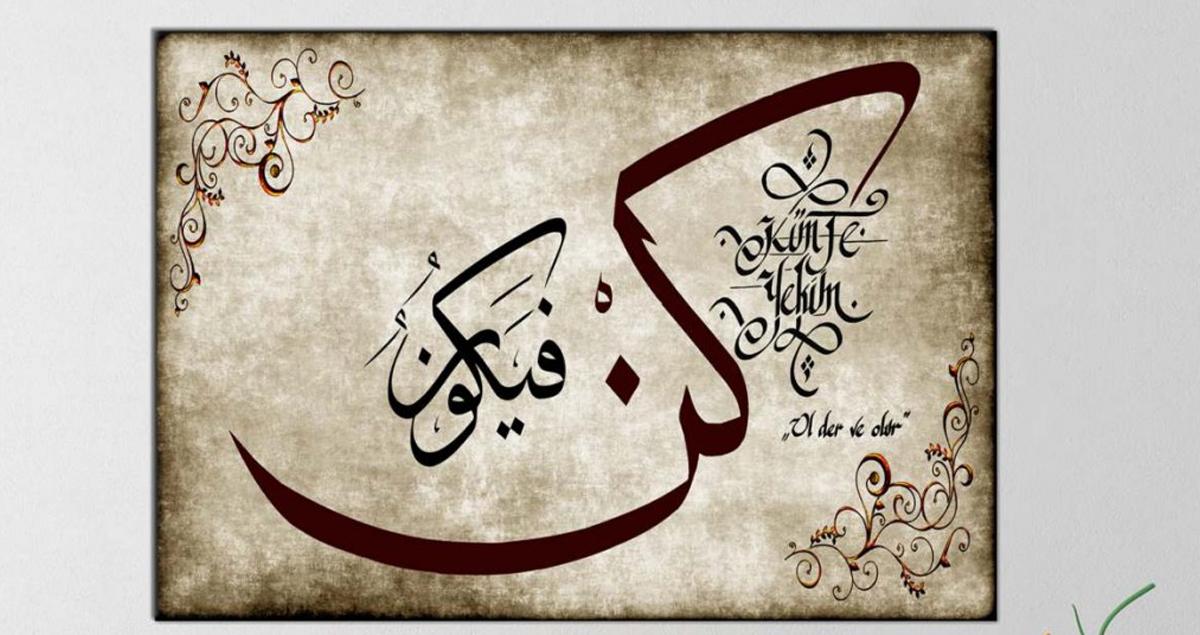 كن
فَيَكُونُ
Künfe
Yekün
„Ol der ve olur“